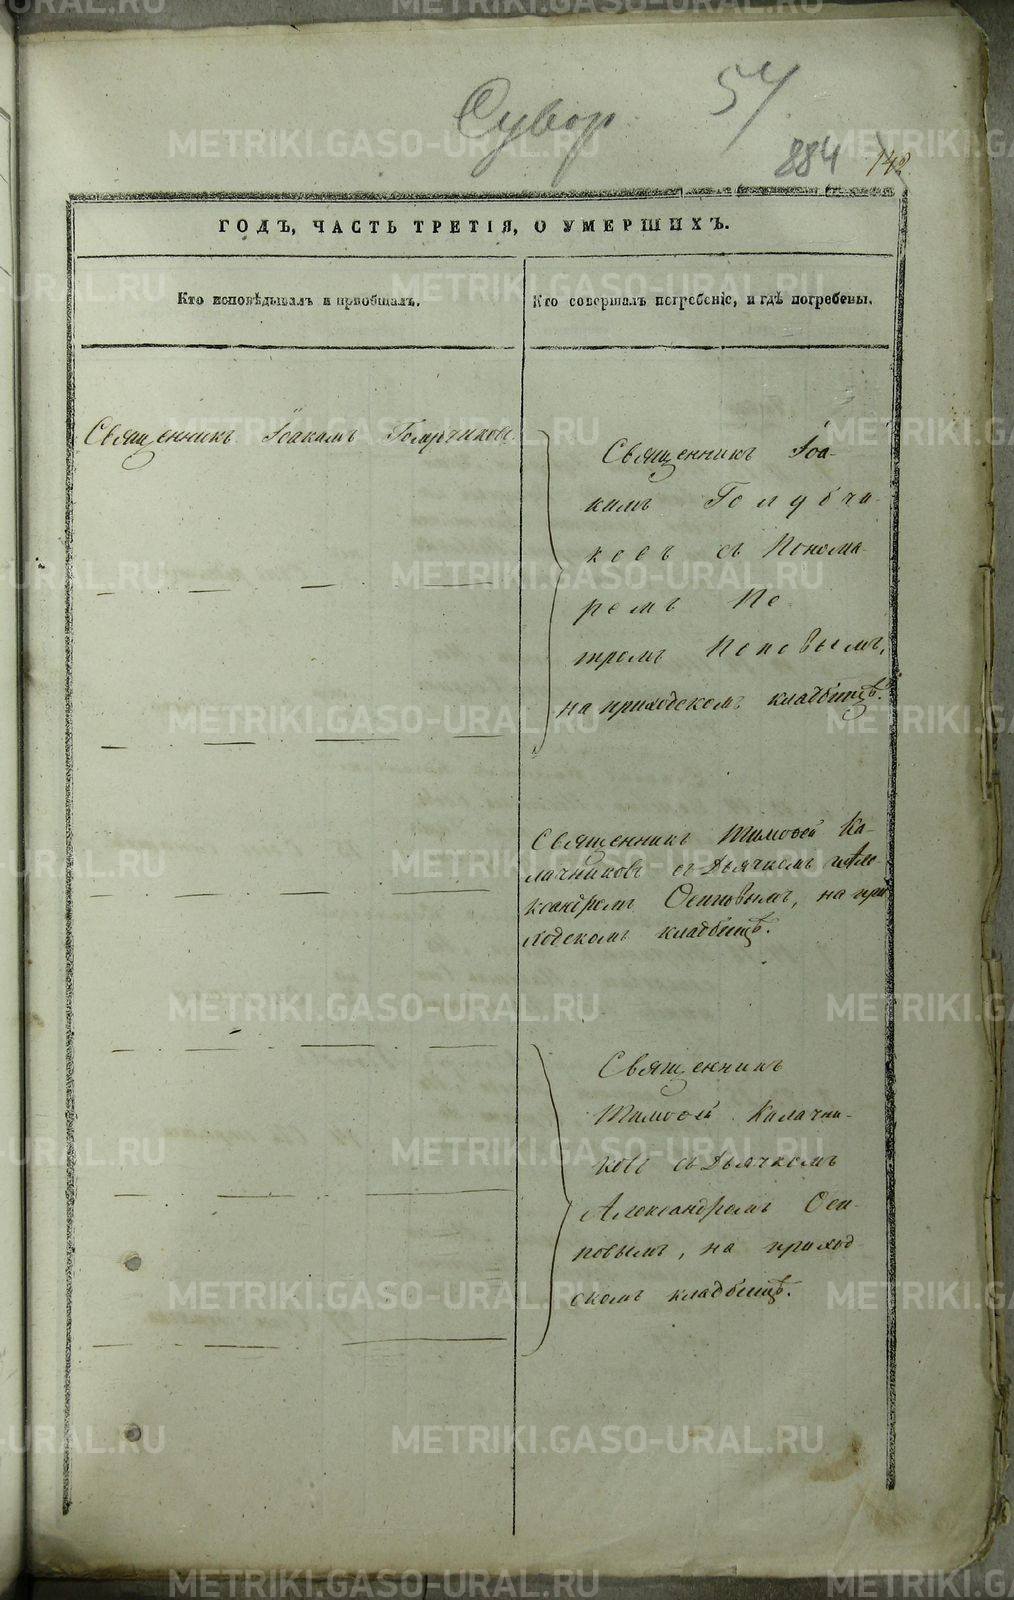 Сувор
54
884
142
ГОДЪ, ЧАСТЬ ТРЕТІЯ, О УМЕРШИХЪ.
Кто исповѣдывалъ и пріобщалъ.
Кто совершалъ погребеніе, и гдѣ погребены.
Священникъ Іоакимъ
Священникъ Іоа-
кимъ Голубчи-
ковъ съ Понома-
ремъ Пе-
тромъ Поповымъ,
на приходскомъ кладбищѣ.
Священникъ Тимоѳей Ка-
лачниковъ съ Дьячкомъ Але-
ксандромъ Осиповымъ, на при-
ходскомъ кладбищѣ.
Священникъ
Тимоѳей Калачни-
ковъ съ Дьячкомъ
Александромъ Оси-
повымъ, на приход
скомъ кладбищѣ.
METRIKI.GASO-URAL.RU